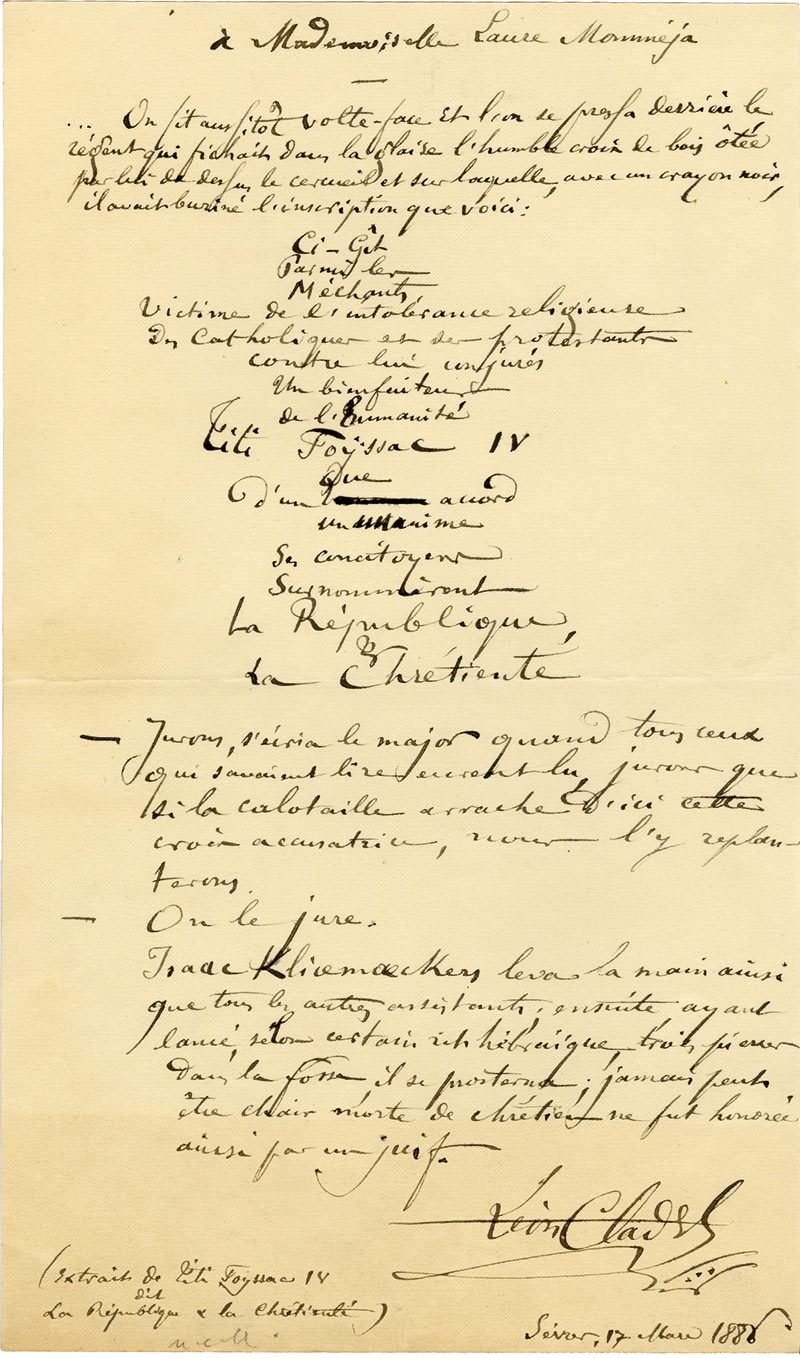 à Mademoiselle Laure Momméja
... On fit aussitôt volte-face et l'on se pressa derrière le
régent qui fichait dans la glaise l'humble croix de bois ôtée
par lui de dessus le cercueil et sur laquelle, avec un crayon noir,
il avait buriné l'inscription que voici:
Ci-Gît
Parmi les
Méchants,
Victime de l'intolérance religieuse
Des Catholiques et des protestants
contre lui conjurés
Un bienfaiteur
de l'Humanité
Titi Foÿssac IV
Que
D'un accord
unanime
Ses concitoyens
Surnommèrent
La République,
La Chrétienté
— Jurons, s'écria le major quand tous ceux
qui savaient lire eurent lu, jurons que
si la calotaille arrache d'ici cette
croix accusatrice, nous l'y replan-
terons.
— On le jure.
Isaac Klicmœckers leva la main ainsi
que tous les autres assistants; ensuite, ayant
lancé, selon certain rit hébraïque, trois pierres
dans la fosse, il se prosterna; jamais peut-
être chair morte de chrétien ne fut honorée
ainsi par un juif.
Léon Cladel
(Extrait de Titi Foyssac IV
dit
La République & la Chrétienté)
Sèvres, 17 Mars 1886